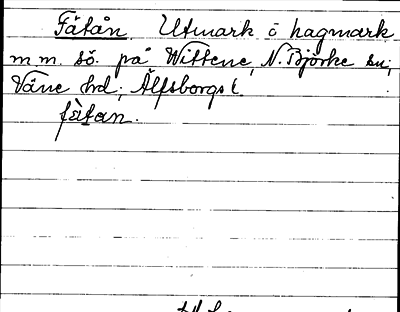 Fåfån Utmark o hagmark
m m. sö. på Wittene, N. Björke sn;
Väne hd; Älfsborgs l.
fåfan.